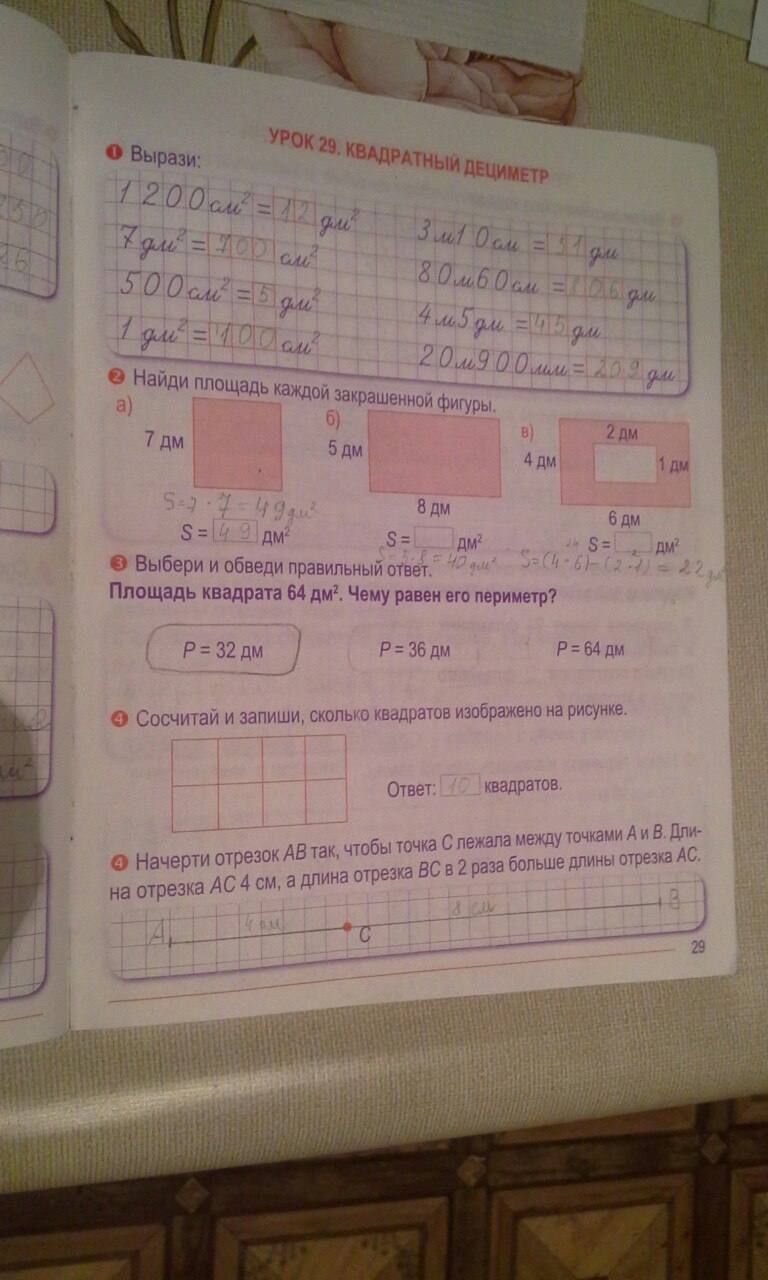 УРОК 29. КВАДРАТНЫЙ ДЕЦИМЕТР
1 Вырази:
1200 см² = 12 дм²
7 дм² = 700 см²
500 см² = 5 дм²
1 дм² = 100 см²
3 м 10 см = 31 дм
80 м 60 см = 806 дм
4 м 5 дм = 45 дм
20 м 900 мм = 209 дм
2 Найди площадь каждой закрашенной фигуры.
а)
7 дм
S=7·7=49 дм²
S = 49 дм²
б)
5 дм
8 дм
S = дм²
S=5·8=40 дм²
в)
2 дм
4 дм
1 дм
6 дм
S = дм²
24 2
S=(4·6)-(2·1)=22 дм²
3 Выбери и обведи правильный ответ.
Площадь квадрата 64 дм². Чему равен его периметр?
P = 32 дм P = 36 дм P = 64 дм
4 Сосчитай и запиши, сколько квадратов изображено на рисунке.
Ответ: 10 квадратов.
4 Начерти отрезок AB так, чтобы точка C лежала между точками A и B. Дли-
на отрезка AC 4 см, а длина отрезка BC в 2 раза больше длины отрезка AC.
A 4 см C 8 см B
29